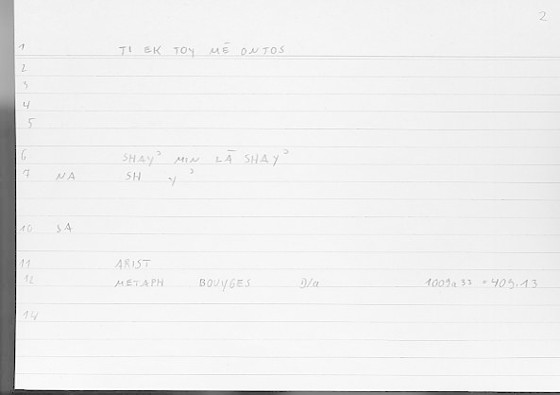 2
1 TI EK TOY MĒ ONTOS
2
3
4
5
6 SHAYʾ MIN LĀ SHAYʾ
7 NA SH Y ʾ
10 SA
11 ARIST
12 METAPH BOUYGES 1009a 32 = 409,13
14